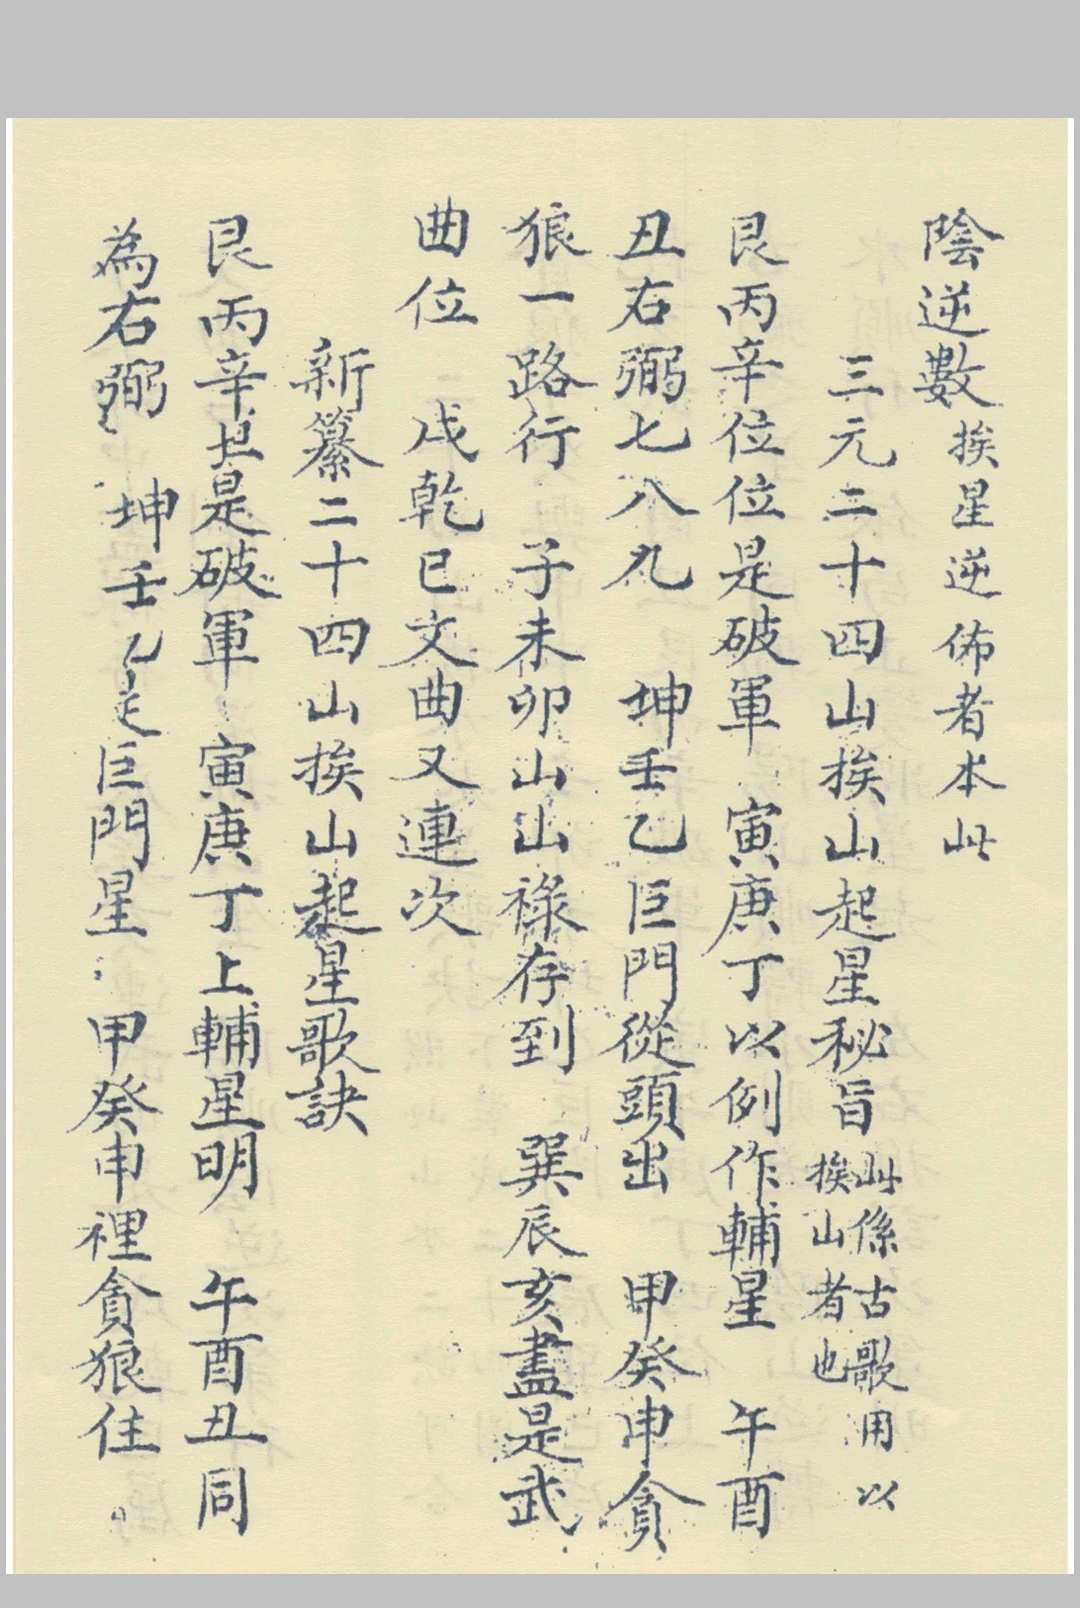 陰逆數挨星逆佈者本此
三元二十四山挨山起星秘旨此係古歌用以挨山者也
艮丙辛位位是破軍 寅庚丁以例作輔星 午酉
丑右弼七八九 坤壬乙巨門從頭出 甲癸申貪
狼一路行 子未卯山山祿存到 巽辰亥盡是武
曲位 戌乾巳文曲又連次
新纂二十四山挨山起星歌訣
艮丙辛是破軍 寅庚丁上輔星明 午酉丑同
為右弼 坤壬乙是巨門星 甲癸申裡貪狼住